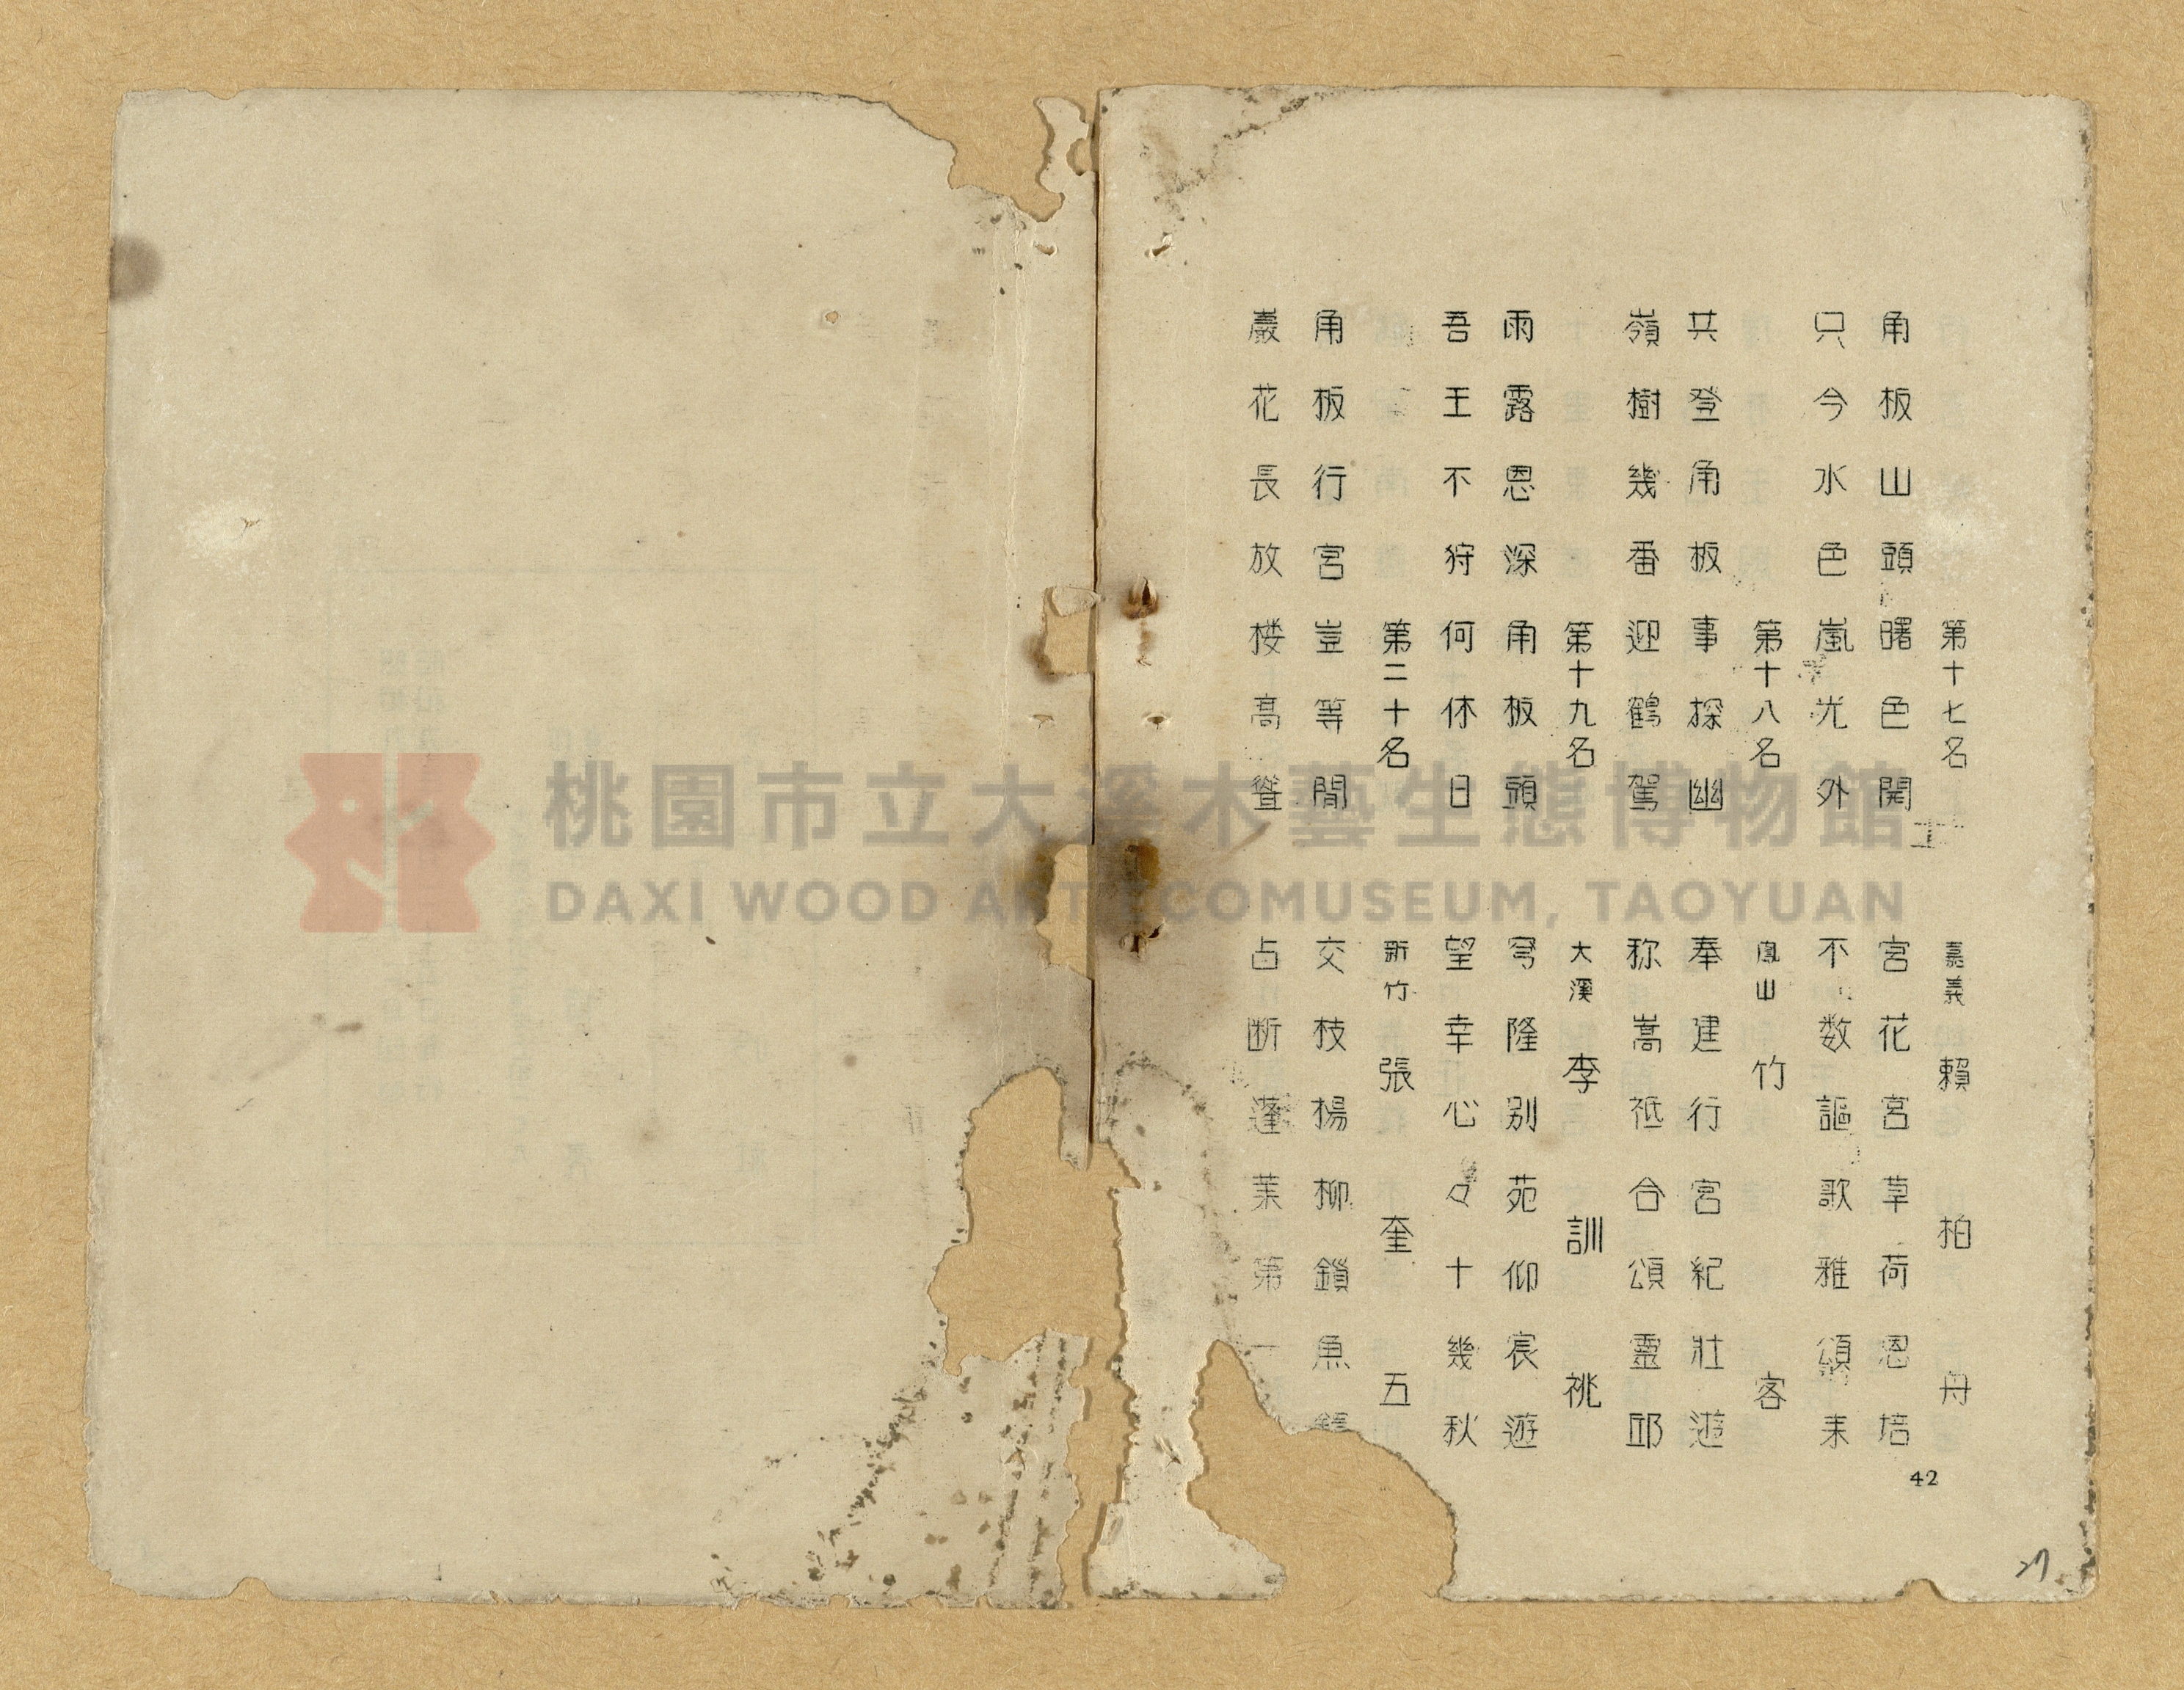 第十七名 嘉義 賴柏舟
角板山頭曙色開 宮花宮草荷恩培
只今水色嵐光外 不数謳歌雅頌来
第十八名 鳳山 竹客
共登角板事探幽 奉建行宮紀壯遊
嶺樹幾番迎鶴駕 称嵩祗合頌靈邱
第十九名 大溪 李訓祧
雨露恩深角板頭 穹隆別苑仰宸遊
吾王不狩何休日 望幸心々十幾秋
第二十名 新竹 張奎五
角板行宮豈等閒 交枝楊柳鎖魚
巖花長放楼高聳 占断蓬莱第一
42
27
桃園市立大溪木藝生態博物館
DAXI WOOD ART ECOMUSEUM, TAOYUAN